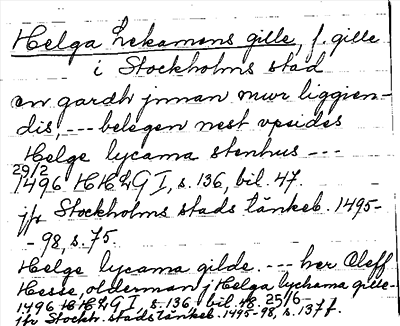 Helga Lekamens gille, f. gille
i Stockholms stad
en gardh jnnan mwr liggien-
dis, --- belegen nest vpsides
Helge lycama stenhus ---
29/2
1496. HHLG I, s. 136, bil. 47
jfr Stockholms stads tänkeb. 1495-
-98, s. 75.
Helge lycama gilde. --- her Oleff
Hesse, olderman j Helga lychama gille-
1496 HHLG I, s. 136, bil. 48. 25/6 -
jfr Stockh. stads tänkeb. 1495-98, s. 137 f.